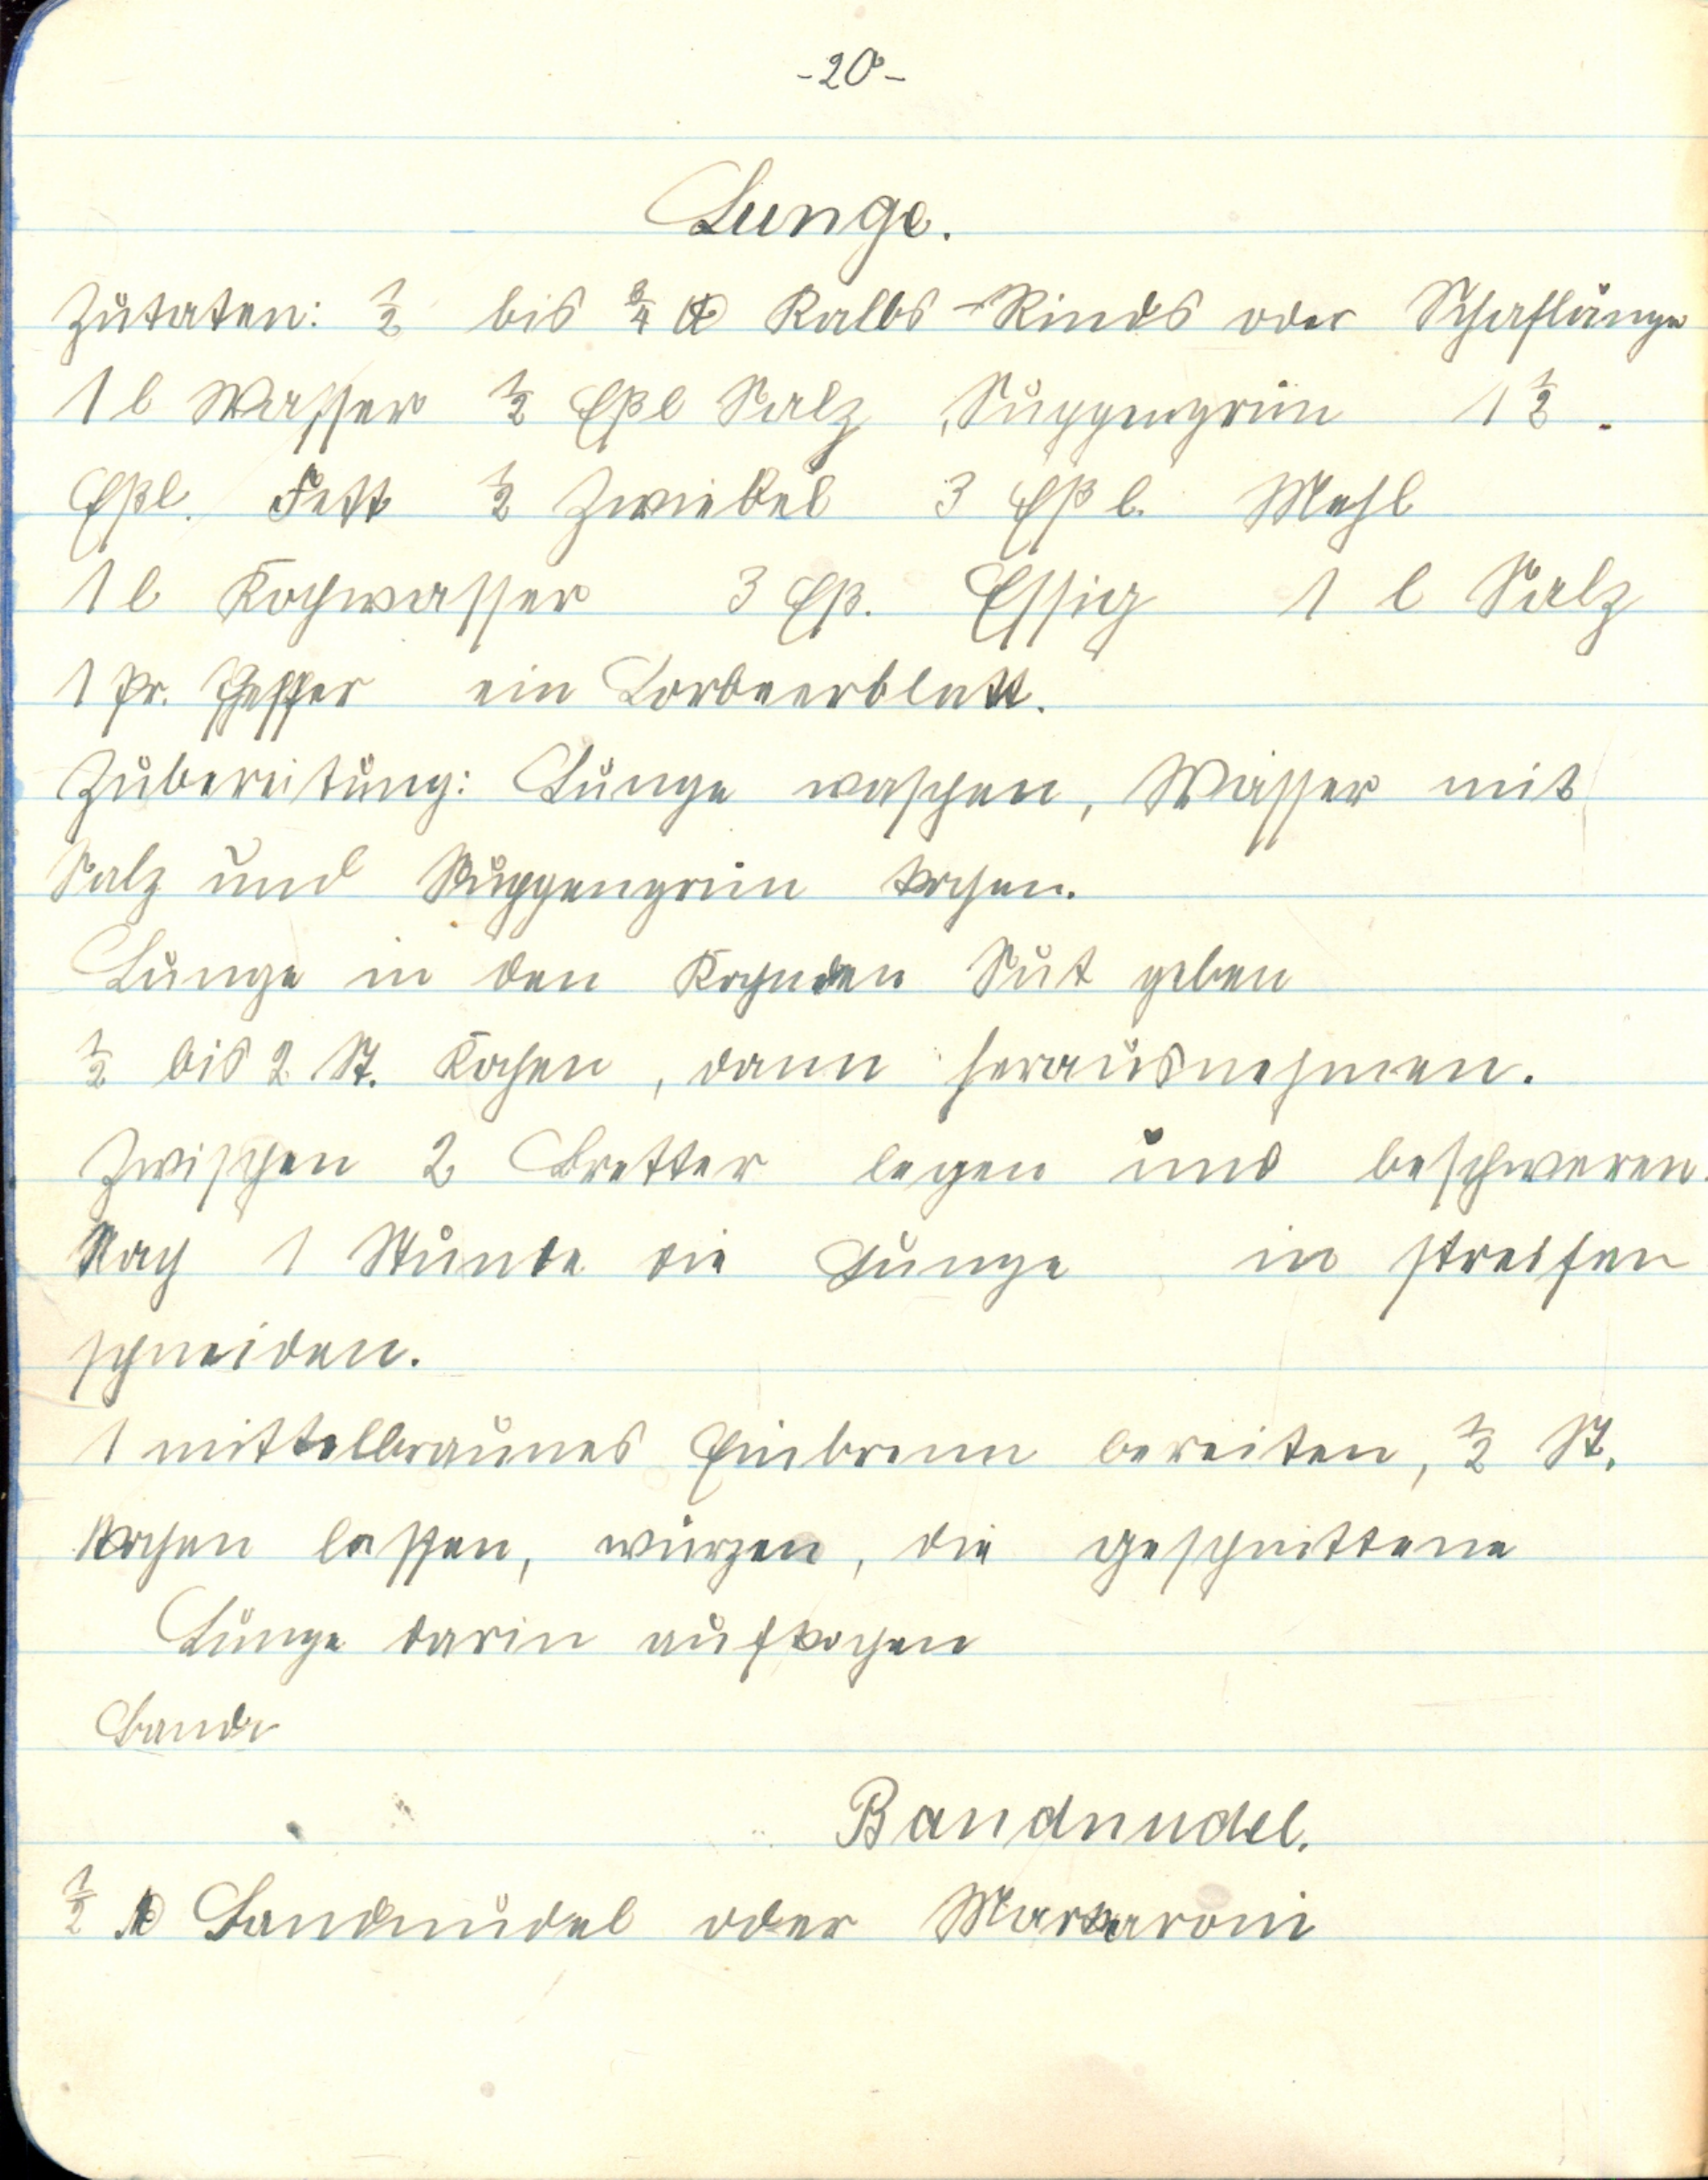 -20-
Lunge.
Zutaten: ½ bis ¾ ℔ Kalbs-Rinds oder Schaflunge
1 l Wasser ½ Eßl Salz, Suppengrün 1 ½
Eßl. Fett ½ Zwiebel 3 Eßl. Mehl
1 l Kochwasser 3 Eß. Essig 1 l Salz
1 Pr. Pfeffer ein Lorbeerblatt.
Zubereitung: Lunge waschen, Wasser mit
Salz und Suppengrün kochen.
Lunge in den Kochnden Sut geben
½ bis 2 St. Kochen, dann herausnehmen.
Zwischen 2 Bretter legen und beschweren.
Nach 1 Stunde die Lunge in streifen
schneiden.
1 mittelbraunes Einbrenn bereiten, ½ St.
kochen lassen, würzen, die geschnittene
Lunge darin aufkochen
Band
Bandnudel.
½ ℔ Bandnudel oder Markaroni